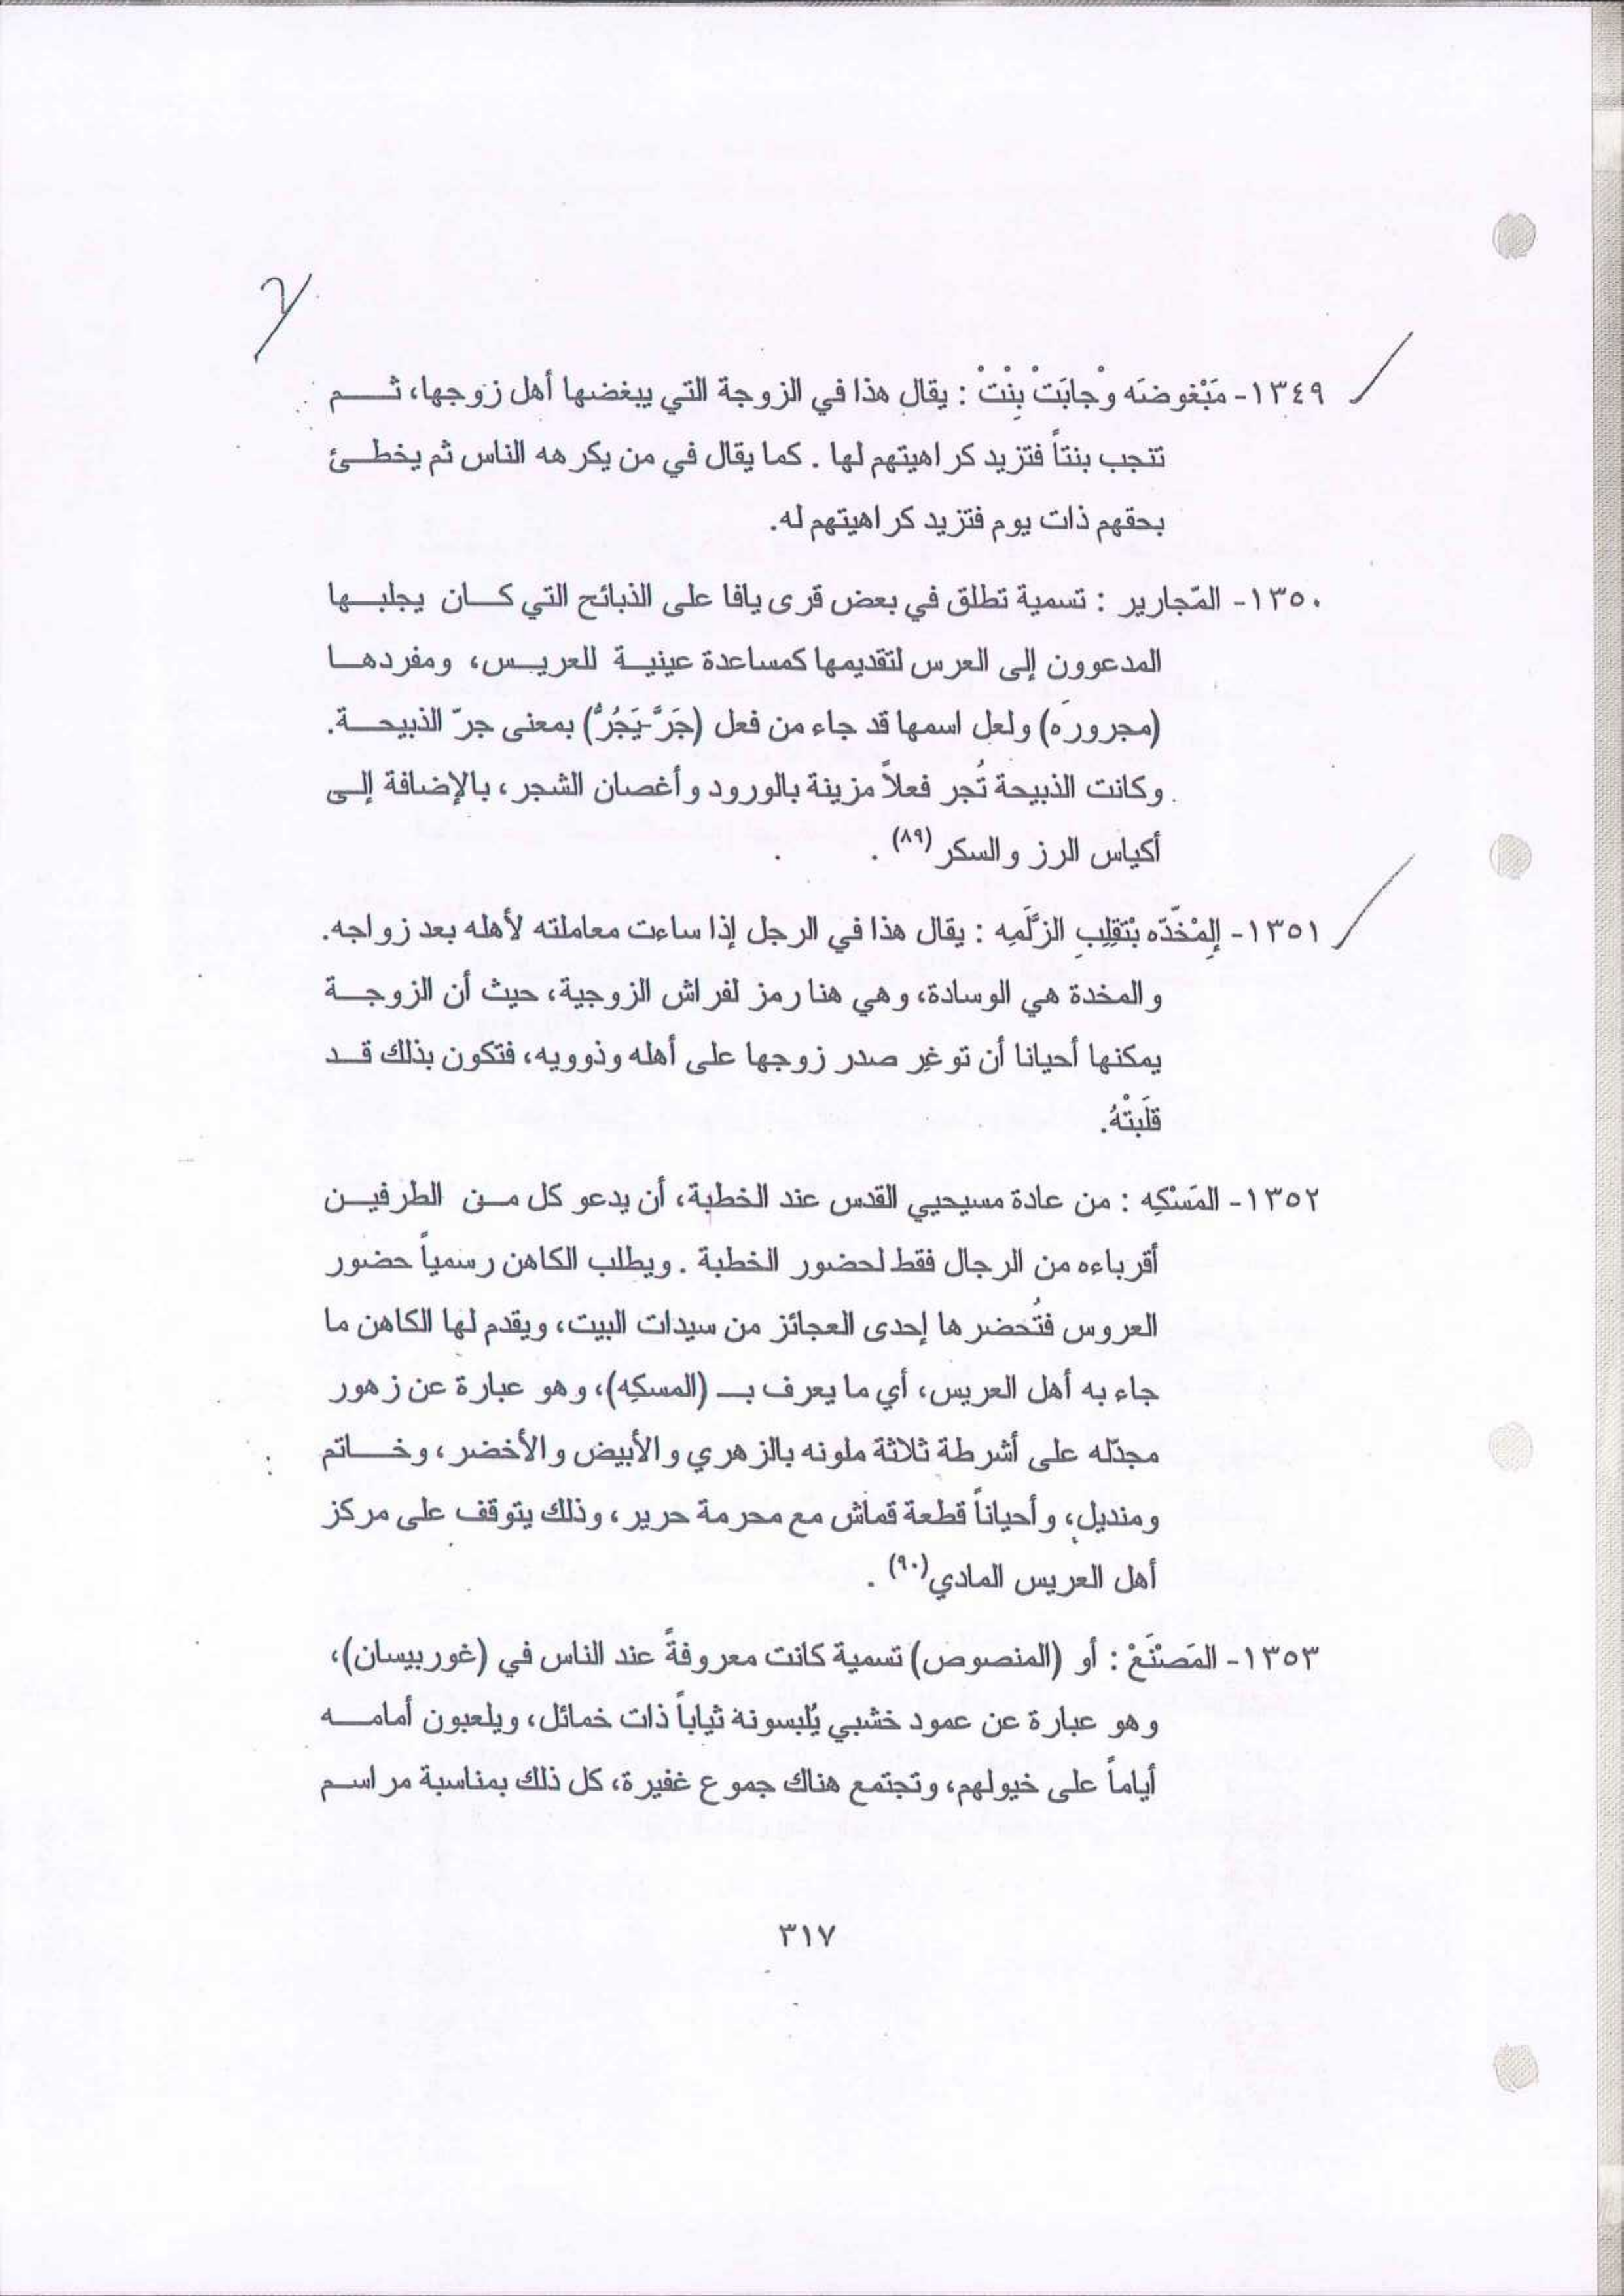 ١٣٤٩- مَبْغوضَه وْجابَتْ بِنْتْ : يقال هذا في الزوجة التي يبغضها أهل زوجها، ثم
تنجب بنتاً فتزيد كراهيتهم لها . كما يقال في من يكرهه الناس ثم يخطئ
بحقهم ذات يوم فتزيد كراهيتهم له.
١٣٥٠- المّجارير : تسمية تطلق في بعض قرى يافا على الذبائح التي كان يجلبها
المدعوون إلى العرس لتقديمها كمساعدة عينية للعريس، ومفردها
(مجرورَه) ولعل اسمها قد جاء من فعل (جَرَّ-يَجُرُّ) بمعنى جرّ الذبيحة.
وكانت الذبيحة تُجر فعلاً مزينة بالورود وأغصان الشجر، بالإضافة إلى
أكياس الرز والسكر (٨٩) .
١٣٥١- إِلمْخَدّه بْتَقِلِبِ الزَّلَمِه : يقال هذا في الرجل إذا ساءت معاملته لأهله بعد زواجه.
والمخدة هي الوسادة، وهي هنا رمز لفراش الزوجية، حيث أن الزوجة
يمكنها أحيانا أن توغِر صدر زوجها على أهله وذوويه، فتكون بذلك قد
قلَبتْهُ.
١٣٥٢- المَسْكِه : من عادة مسيحيي القدس عند الخطبة، أن يدعو كل من الطرفين
أقرباءه من الرجال فقط لحضور الخطبة . ويطلب الكاهن رسمياً حضور
العروس فتُحضرها إحدى العجائز من سيدات البيت، ويقدم لها الكاهن ما
جاء به أهل العريس، أي ما يعرف بـ (المسكِه)، وهو عبارة عن زهور
مجدّله على أشرطة ثلاثة ملونه بالزهري والأبيض والأخضر، وخاتم
ومنديل، وأحياناً قطعة قماش مع محرمة حرير، وذلك يتوقف على مركز
أهل العريس المادي(٩٠) .
١٣٥٣- المَصْنَعْ : أو (المنصوص) تسمية كانت معروفةً عند الناس في (غور بيسان)،
وهو عبارة عن عمود خشبي يُلبسونه ثياباً ذات خمائل، ويلعبون أمامه
أياماً على خيولهم، وتجتمع هناك جموع غفيرة، كل ذلك بمناسبة مراسم
٣١٧